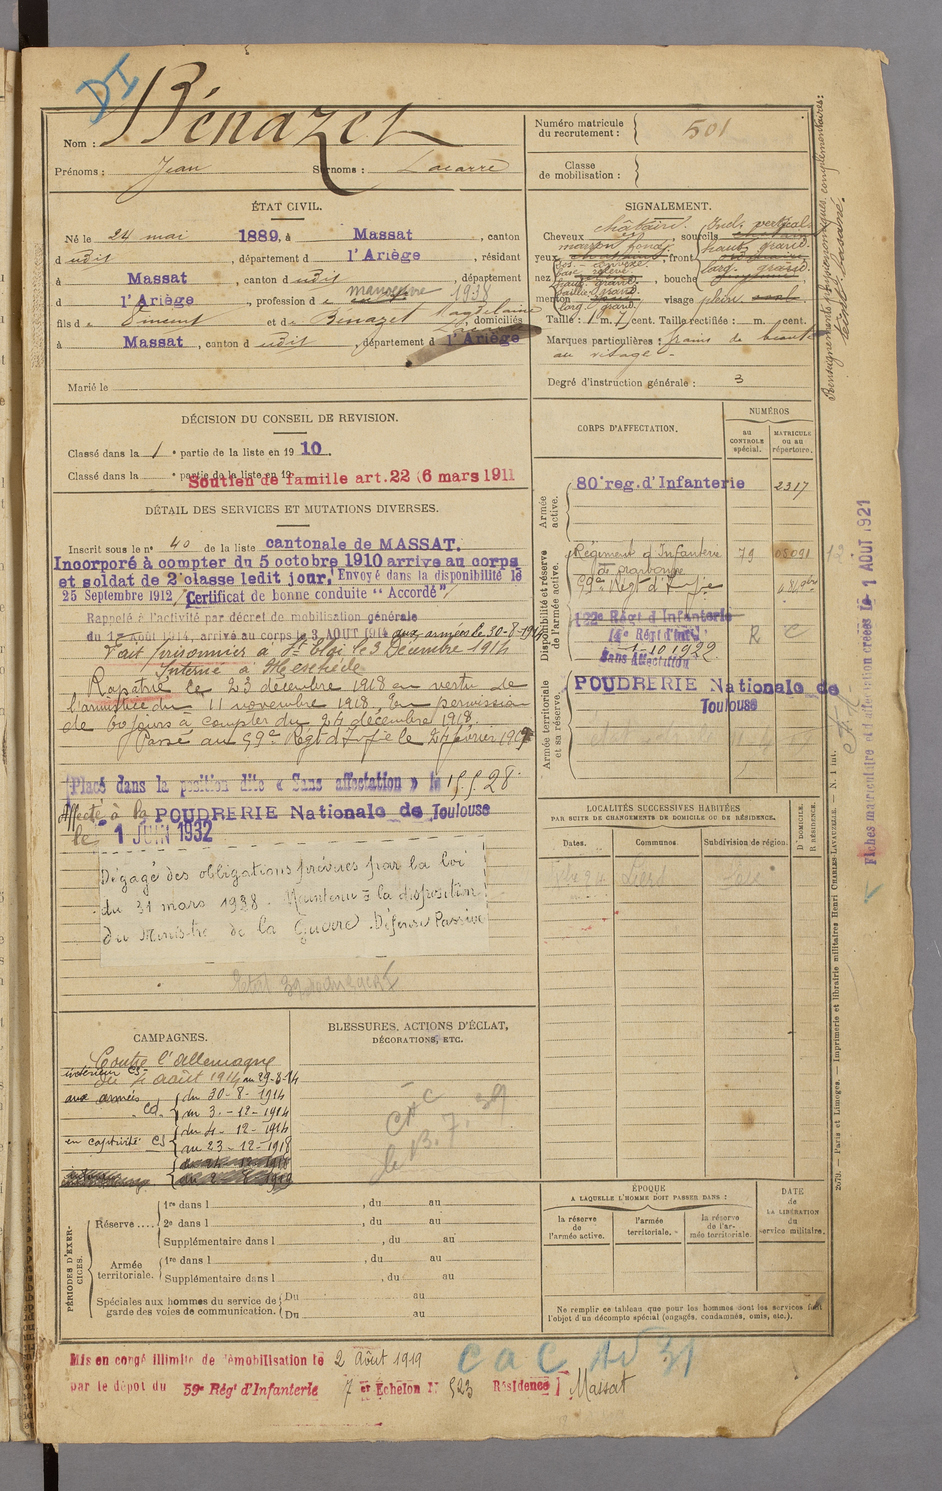 Bénazet
Nom :
Prénoms : Jean Surnoms : Lacarre
Numéro matricule
du recrutement : 501
Classe
de mobilisation :
ÉTAT CIVIL.
Né le 24 mai 1889, à Massat, canton
dudit, département d l'Ariège, résidant
à Massat, canton dudit, département
d l'Ariège, profession de manœuvre 1938
fils de Vincent et de Bénazet Magdelaine, domiciliés
à Massat, canton dudit, département d l'Ariège
Marié le
SIGNALEMENT.
châtain Incl. vertical
Cheveux , sourcils
marron foncé haut. grand.
yeux , front
larg. grand.
nez , bouche
menton , visage plein
Taille : 1 m. 7 cent. Taille rectifiée : m. cent.
Marques particulières : grains de beauté
au visage -
Degré d'instruction générale : 3
Renseignements physionomiques complémentaires :
teint basané.
DÉCISION DU CONSEIL DE REVISION.
Classé dans la 1e partie de la liste en 1910.
Classé dans la e partie de la liste en 19
Soutien de famille art. 22 (6 mars 1911
DÉTAIL DES SERVICES ET MUTATIONS DIVERSES.
Inscrit sous le n° 40 de la liste cantonale de MASSAT.
Incorporé à compter du 5 octobre 1910 arrive au corps
et soldat de 2e classe ledit jour. Envoyé dans la disponibilité le
25 Septembre 1912 Certificat de bonne conduite "Accordé"
Rappelé à l'activité par décret de mobilisation générale
du 1er août 1914, arrivé au corps le 3 AOUT 1914 aux armées le 30-8-1914
Fait prisonnier à St Eloi le 3 Décembre 1914
Interné à Meschede
Rapatrié le 23 décembre 1918 en vertu de
l'armistice du 11 novembre 1918. En permission
de 60 jours à compter du 24 décembre 1918.
Passé au 59e Régt d'Infie le 24 février 1919
Placé dans la position dite « Sans affectation » le 15.5.28.
Affecté à la POUDRERIE Nationale de Toulouse
le 1 JUIN 1932
Dégagé des obligations prévues par la loi
du 31 mars 1928. Maintenu à la disposition
du Ministre de la Guerre. Défense Passive
CORPS D'AFFECTATION.
NUMÉROS
au
CONTROLE
spécial.
MATRICULE
ou au
répertoire.
Armée
active.
80e reg. d'Infanterie 2317
Disponibilité et réserve
de l'armée active.
Régiment d'Infanterie 79 05091
de Narbonne
59e Régt d'Infie
122e Régt d'Infanterie
14e Régt d'Inf. R C
1-10 1922
Sans Affectation
Armée territoriale
et sa réserve.
POUDRERIE Nationale de
Toulouse
LOCALITÉS SUCCESSIVES HABITÉES
PAR SUITE DE CHANGEMENTS DE DOMICILE OU DE RÉSIDENCE.
Dates. Communes. Subdivision de région.
D DOMICILE.
R RÉSIDENCE.
CAMPAGNES.
Contre l'Allemagne
intérieur CS du 4 août 1914 au 29-8-14
aux armées du 30-8-1914
Cd. au 3-12-1914
du 4-12-1914
en captivité CS au 23-12-1918
BLESSURES, ACTIONS D'ÉCLAT,
DÉCORATIONS, ETC.
CAC
le 13.7.39
PÉRIODES D'EXERCICES.
Réserve .... 1re dans l , du au
2e dans l , du au
Supplémentaire dans l , du au
Armée
territoriale. 1re dans l , du au
Supplémentaire dans l , du au
Spéciales aux hommes du service de
garde des voies de communication. Du au
Du au
ÉPOQUE
A LAQUELLE L'HOMME DOIT PASSER DANS :
la réserve
de
l'armée active.
l'armée
territoriale.
la réserve
de l'ar-
mée territoriale.
DATE
de
LA LIBÉRATION
du
service militaire.
Ne remplir ce tableau que pour les hommes dont les services font
l'objet d'un décompte spécial (engagés, condamnés, omis, etc.).
Mis en congé illimité de démobilisation le 2 Août 1919
par le dépôt du 59e Rég' d'Infanterie 7 er Echelon N° 523 Résidence Massat
Fiches mécrées le 1 AOUT 1921
2679. — Paris et Limoges. — Imprimerie et librairie militaires Henri CHARLES-LAVAUZELLE. — N. 1 int.